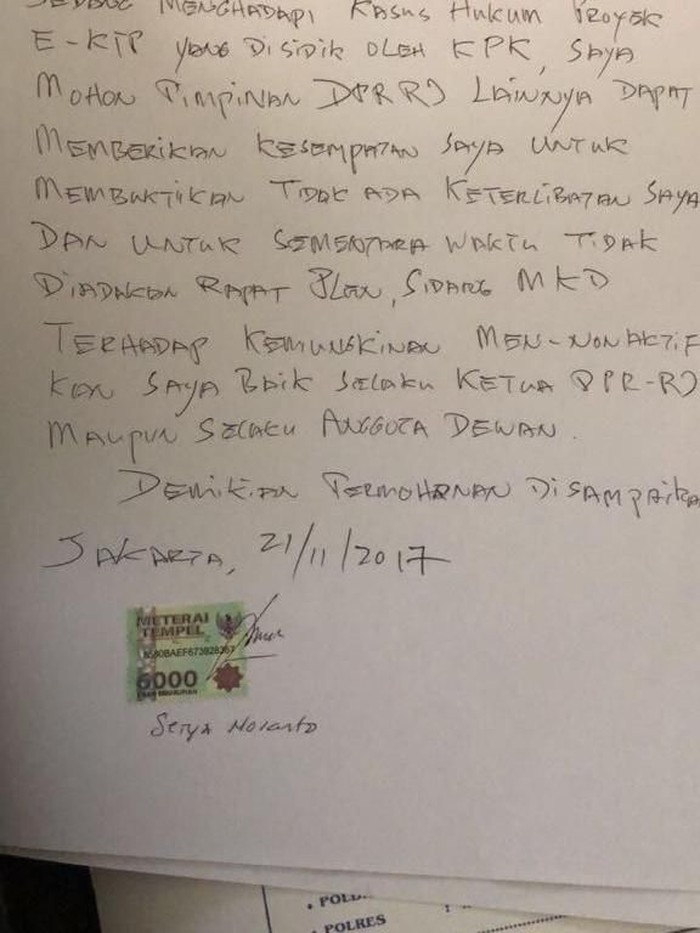 SEDANG MENGHADAPI KASUS HUKUM PROYEK
E-KTP YANG DISIDIK OLEH KPK, SAYA
MOHON PIMPINAN DPR RI LAINNYA DAPAT
MEMBERIKAN KESEMPATAN SAYA UNTUK
MEMBUKTIKAN TIDAK ADA KETERLIBATAN SAYA
DAN UNTUK SEMENTARA WAKTU TIDAK
DIADAKAN RAPAT PLENO, SIDANG MKD
TERHADAP KEMUNGKINAN MEN-NONAKTIF
KAN SAYA BAIK SELAKU KETUA DPR-RI
MAUPUN SELAKU ANGGOTA DEWAN.
DEMIKIAN PERMOHONAN DISAMPAIKA
JAKARTA, 21/11/2017
METERAI
TEMPEL
6000
Setya Novanto
• POLD
• POLRES :